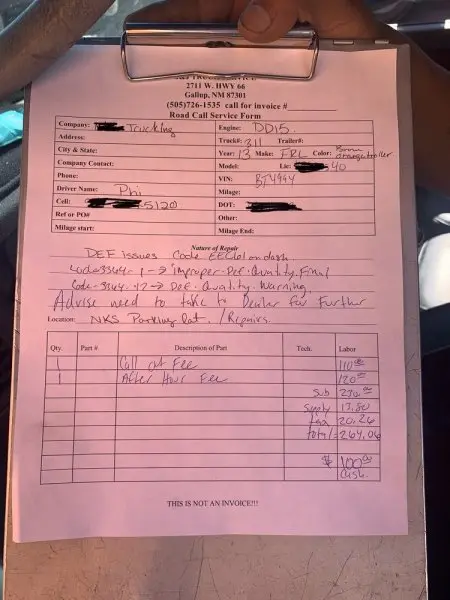 2711 W. HWY 66
Gallup, NM 87301
(505)726-1535 call for invoice #
Road Call Service Form
Company: Trucking
Engine: DD15
Address:
Truck#: 311 Trailer#:
City & State:
Year: 13 Make: FRL Color:
Company Contact:
Model: Lic: 40
Phone:
VIN: BT4994
Driver Name: Phi
Milage:
Cell: 5120
DOT:
Ref or PO#
Other:
Milage start:
Milage End:
Nature of Repair
DEF issues Code on dash
Code 3364-1 → improper DEF Quality. Final
Code-3364-17 → DEF. Quality. Warning
Advise need to take to Dealer for Further
Location: NKS Parking lot. / Repairs.
Qty. Part #. Description of Part Tech. Labor
1 Call out Fee 110 00
1 After Hour Fee 120 00
Sub 00
Supply 13.80
tax 20.26
total= 264.06
$ 100 00
Cash.
THIS IS NOT AN INVOICE!!!